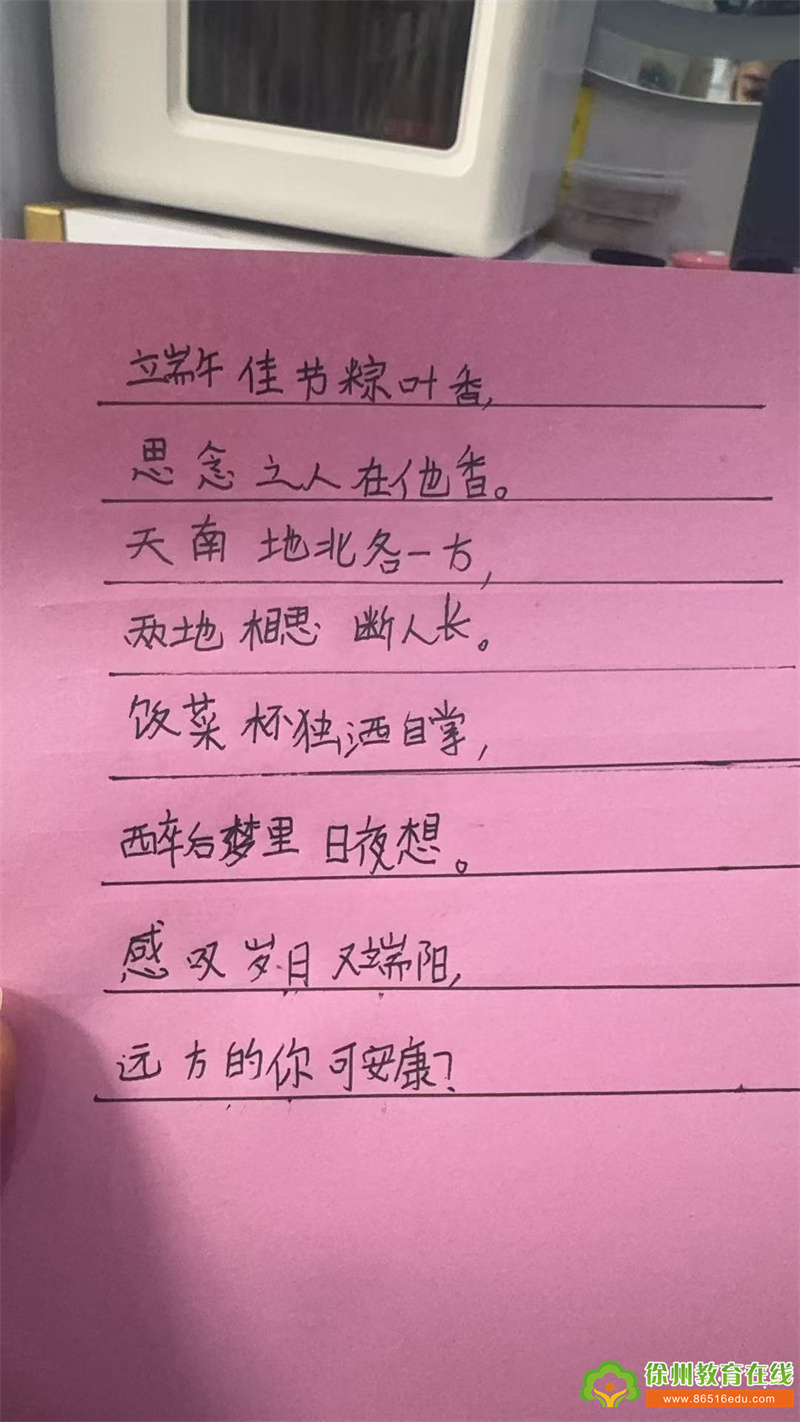 端午佳节粽叶香,
思念之人在他香。
天南地北各一方,
两地相思断人长。
饭菜杯独洒自掌,
醉后梦里日夜想。
感叹岁日又端阳,
远方的你可安康?
徐州教育在线
www.86516edu.com